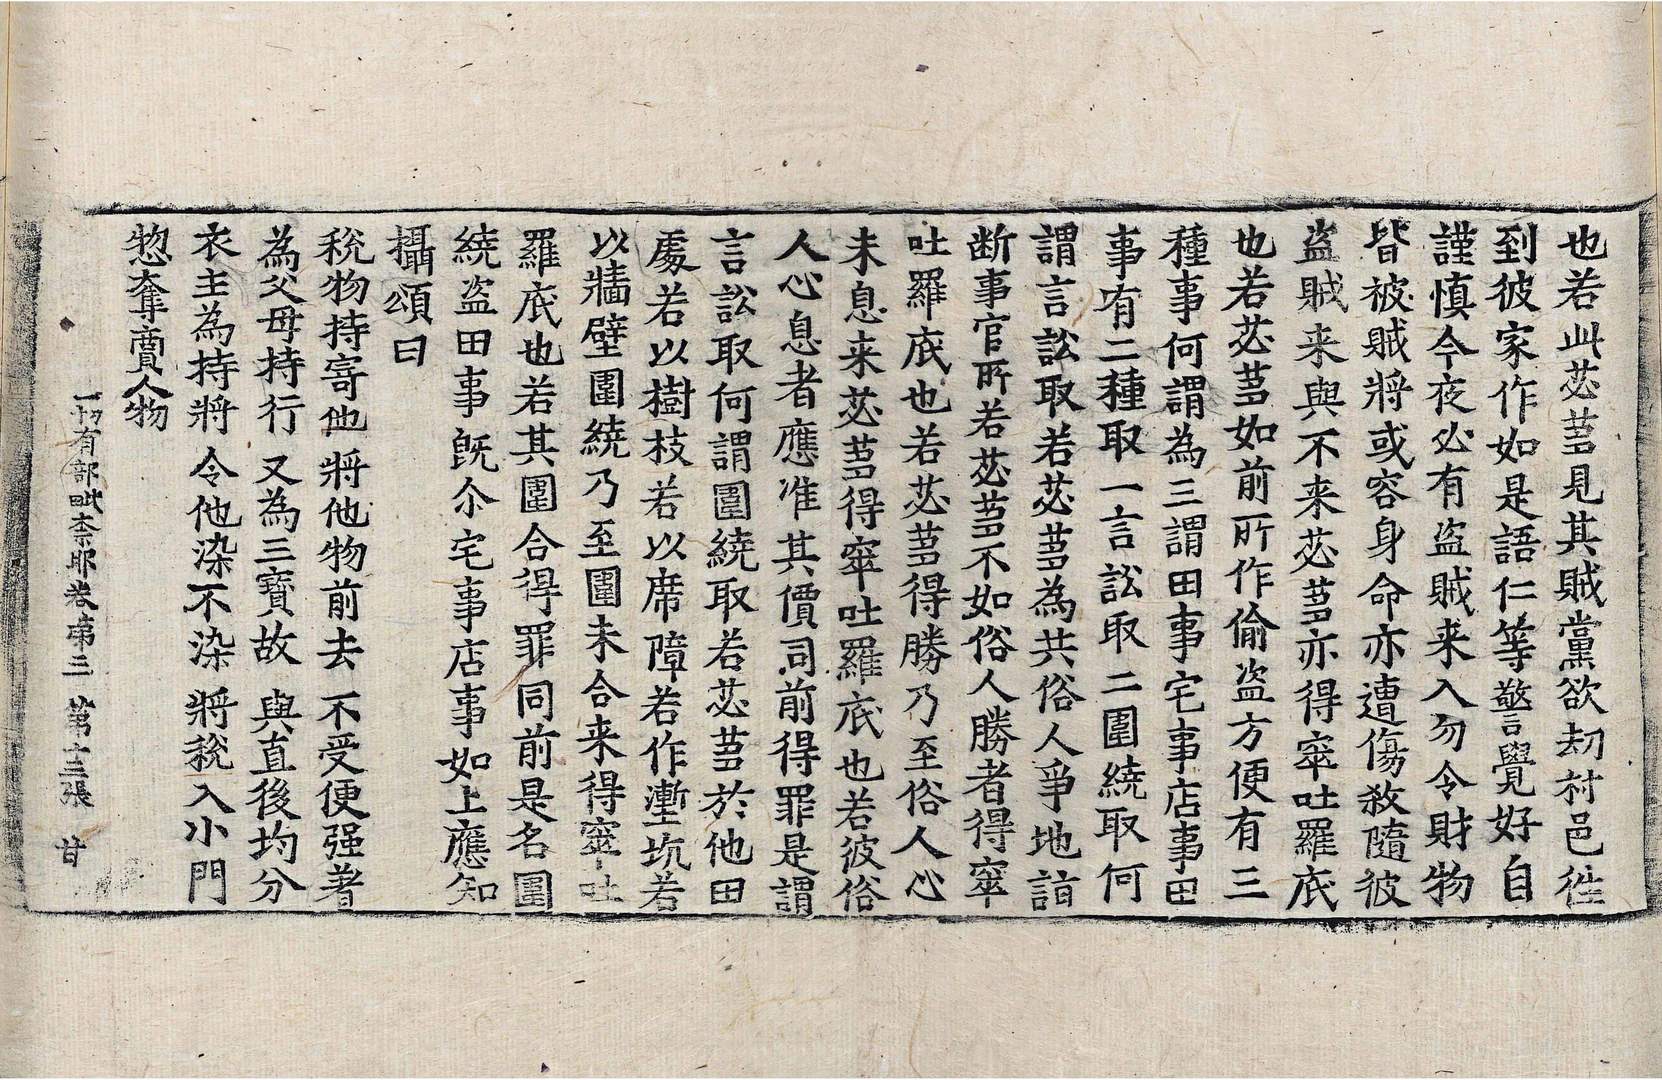 也若此苾蒭見其賊黨欲刼村邑徃
到彼家作如是語仁等警覺好自
謹慎今夜必有盜賊来入勿令財物
皆被賊將或容身命亦遭傷敎隨彼
盜賊来與不来苾蒭亦得窣吐羅底
也若苾蒭如前所作偷盜方便有三
種事何謂為三謂田事宅事店事田
事有二種取一言訟取二圍繞取何
謂言訟取若苾蒭為共俗人爭地詣
断事官所若苾蒭不如俗人勝者得窣
吐羅底也若苾蒭得勝乃至俗人心
未息来苾蒭得窣吐羅底也若彼俗
人心息者應准其價同前得罪是謂
言訟取何謂圍繞取若苾蒭於他田
處若以樹枝若以席障若作壍坑若
以牆壁圍繞乃至圍未合来得窣吐
羅底也若其圍合得罪同前是名圍
繞盜田事旣尒宅事店事如上應知
攝頌曰
稅物持寄他 將他物前去 不受便强著
為父母持行 又為三寶故 與直後均分
衣主為持將 令他染不染 將稅入小門
惣奪賣人物
一切有部毗柰耶卷第三 第十三張 甘